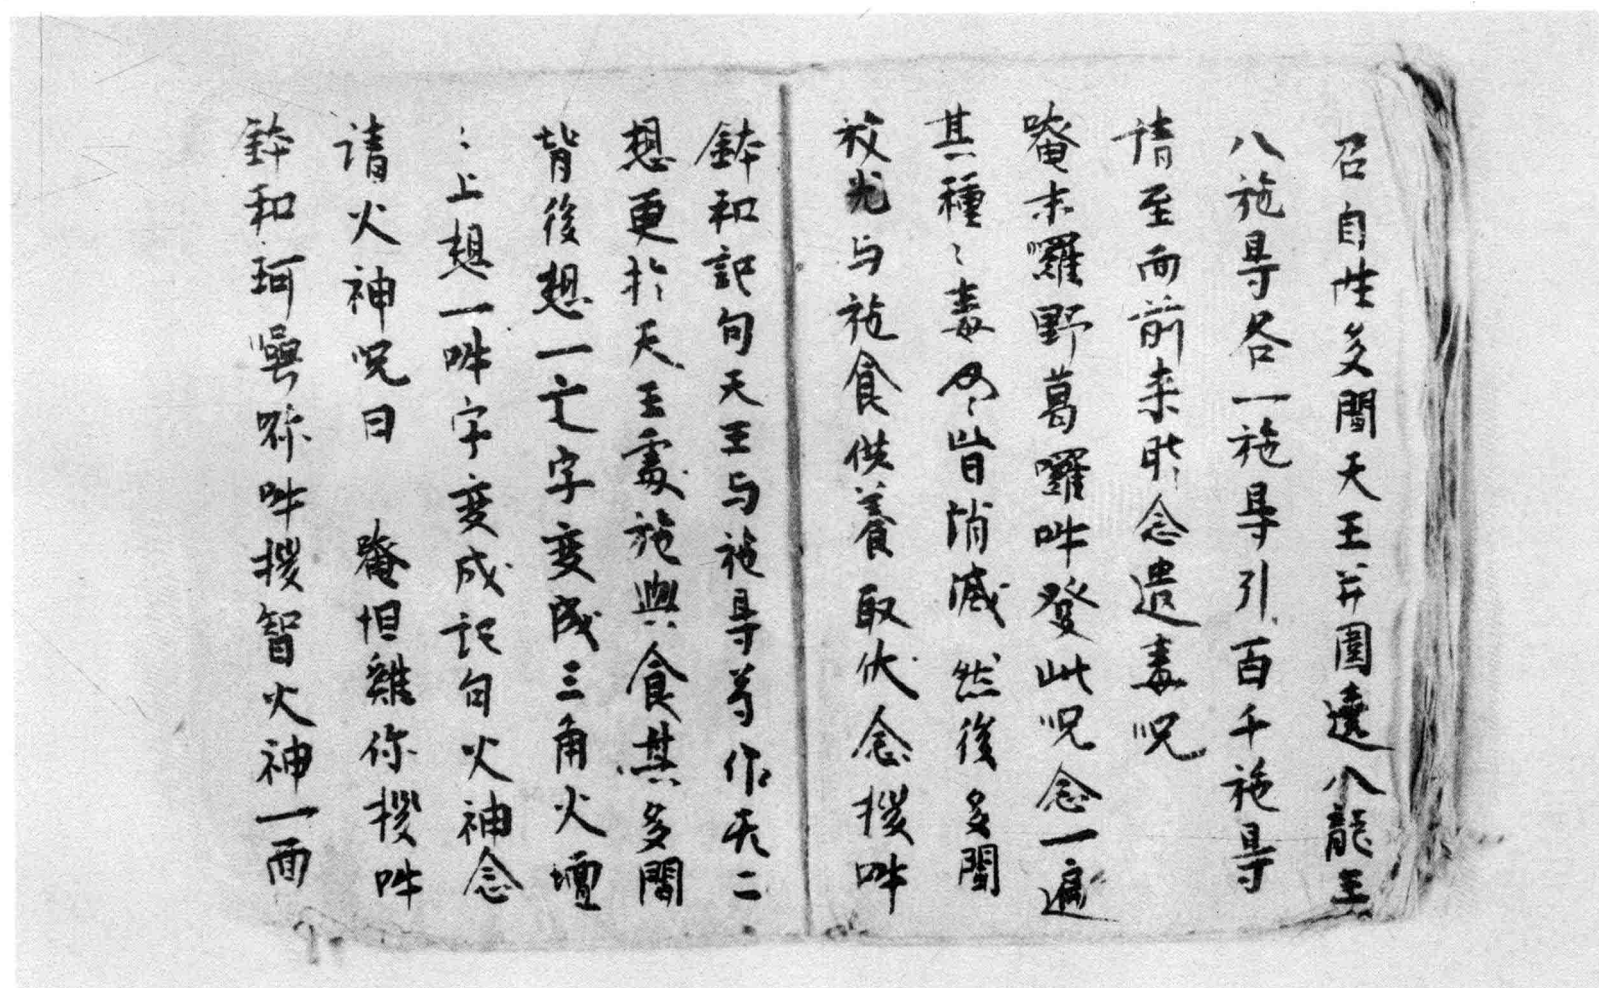 召自性多聞天王并圍遶八龍王
八施导各一施导引百千施导
请至面前来时念遣毒呪
唵末囉野葛囉吽發此呪念一遍
其種〻毒氣皆消滅然後多聞
放光与施食供養取伏念㨖吽
鉢和記句天王与施导等作无二
想更於天王處施與食其多聞
背後想一亡字变成三角火壇
〻上想一吽字变成記句火神念
请火神呪曰 唵怛雞你㨖吽
鉢和珂㘁㖿吽㨖智火神一面